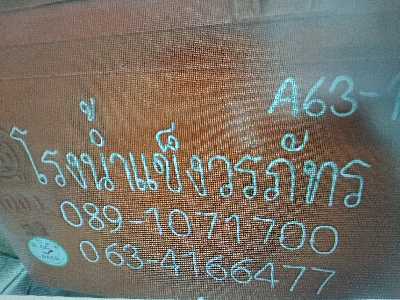 A63-
โรงน้ำแข็งวรภัทร
089-1071700
063-4166477